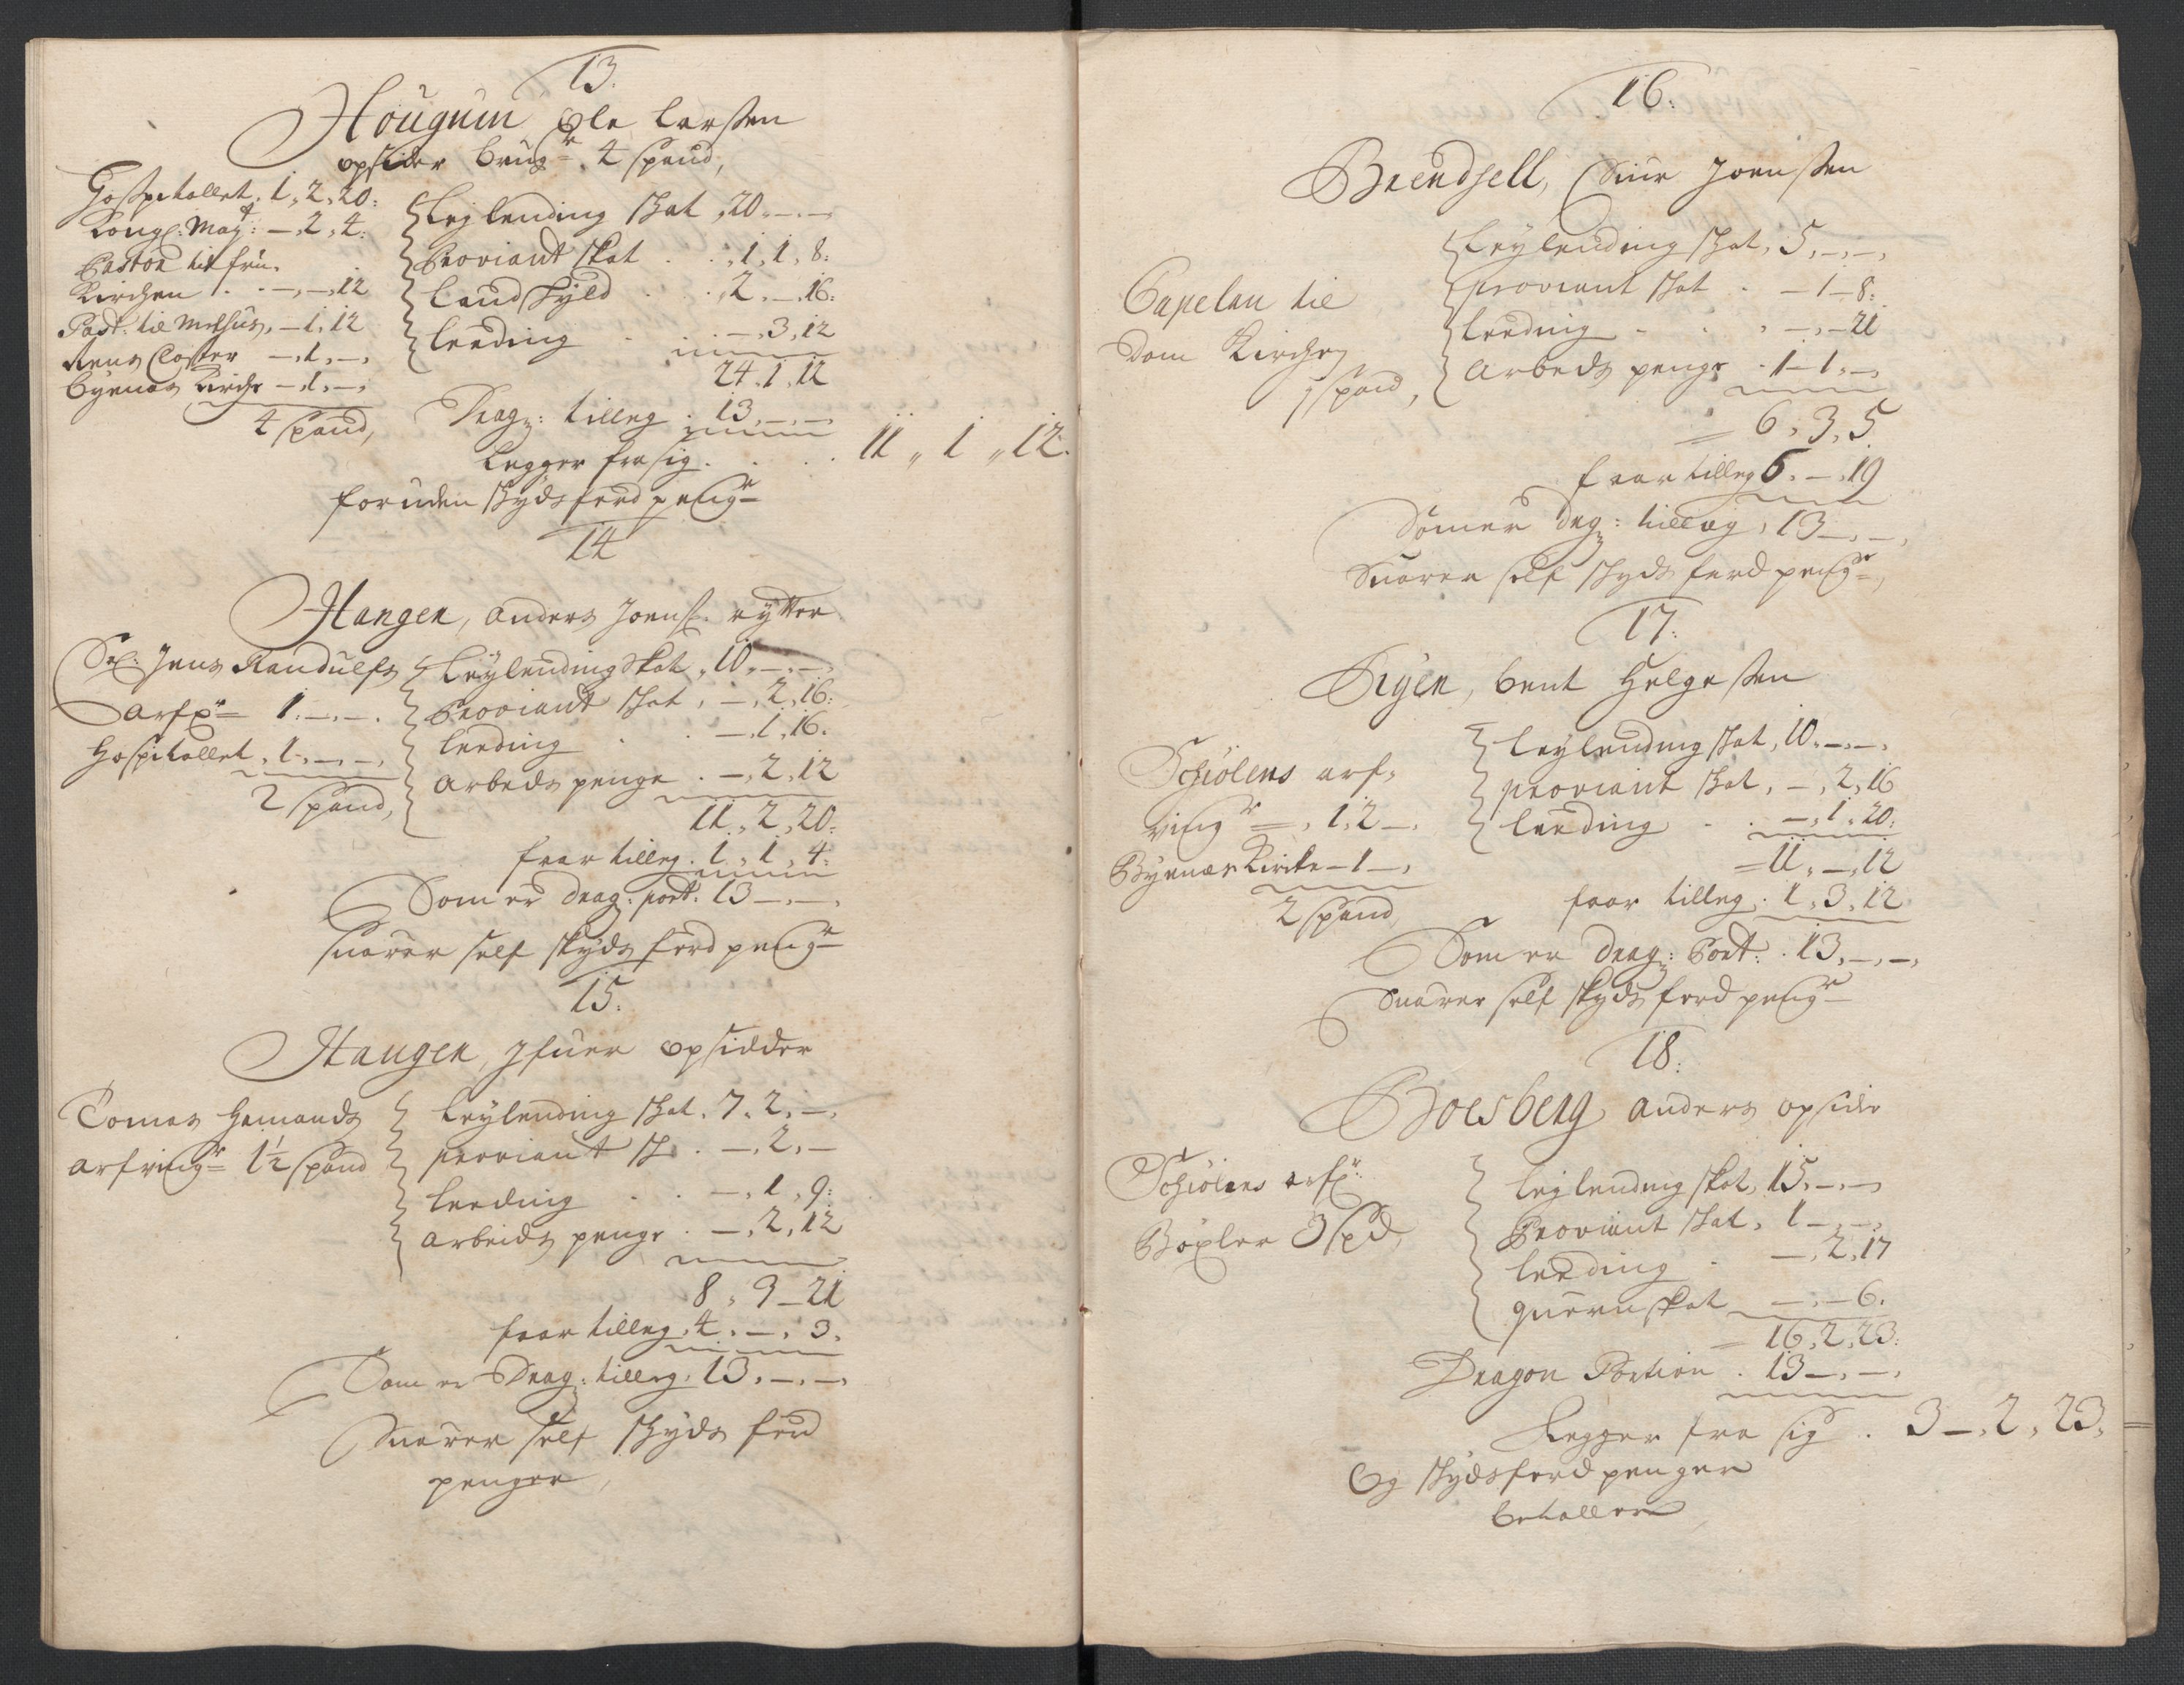 13.
Hougum Ole Larssen
opsider brug.r 4 Spand,
Hosspitallet. 1, 2, 20:
Kongl: May.t: –, 2, 4:
Pastor til frue
Kirchen . . –, –, 12
Past: til Melhus, – 1, 12
Rens Closter –, 1, –,
Byenes Kirche –, 1, –,
4 Spand,
Leylending Skat , 20, –, –
Proviant Skat . . , 1, 1, 8:
Landskyld . . 2, –, 16:
Leeding . . –, 3, 12
24, 1, 12
Drag: tilleg . 13, –, –,
Legger fra sig . . . 11 „ 1 „ 12.
foruden skydsferd peng.r
14
Haugen, Anders Joens: rytter
Sl: Jens Randulfs
Arf.r 1, –, –.
Hospitallet, 1, –, –,
2 Spand,
Leylending Skat , 10, –, –,
Proviant Skat , –, 2, 16:
Leeding . . –, 1, 16.
Arbeds penge . –, 2, 12
11, 2, 20:
faar tilleg . 1, 1, 4:
Som er drag: port: 13 –, –,
suarer self skyds ferd peng.r
15:
Haugen, Ifuer opsidder
Tomas Hamands
arfving.r 1½ Spand
Leylending Skat . 7, 2, –,
proviant Sk . –, 2, –
Leeding . . –, 1, 9:
Arbeids penge . –, 2, 12
8, 3 – 21
faar tilleg, 4, –, 3,
Som er Drag: tilleg, 13, –, –,
Suarer self skyds ferd
penger,
16:
Brendsell, Siur Joenssen
Capelan til
Dom Kirchen
1 Spand,
Leylending Skat, 5, –, –,
proviant Skat . – 1 – 8:
Leeding . . , –, – 21
Arbeds penge . 1 – 1, –,
6, 3, 5
faar tilleg 6, –, 19
Somer Drg: tilleg , 13 –, –,
Suarer self skyds ferd peng.r,
17:
Byen, bent Helgessen
Schiølens arf-
ving.r , 1, 2 –,
Byenes Kirke – 1 –,
2 Spand
Leylending Skat, 10, –, –,
proviant Skat, –, 2, 16
Leeding . . –, 1, 20:
11, –, 12
faar tilleg . 1, 3, 12
Som er Drag: Port: . 13, –, –,
Suarer self skyds ferd peng.r
18:
Boesberg Anders opsider
Schiølens arf.r
Bøxler 3 Spd,
Leylending skat, 15, –, –
Proviant Skat, 1 –, –,
Leeding . –, 2, 17
quern skat –, – 6.
16, 2, 23:
Dragon Portion . 13 –, –,
Legger fra sig . 3 –, 2, 23,
Og skydsferd penger
betaller